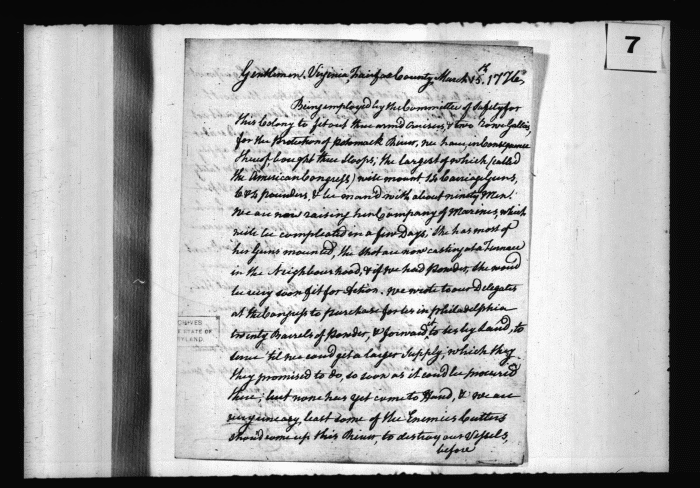 7
Gentlemen, Virginia, Fairfax County March 15th. 1776.
Being employed by the Committee of Safety for
this Colony to fit out three armed Cruisers, & two Row Gallies,
for the Protection of Potomack River, we have, in Consequence
thereof bought three Sloops; the largest of which (called
the American Congress) will mount 14 Carriage Guns,
6 & 4 pounders, & be man'd with about ninety Men.
We are now raising her Company of Marines, which
will be compleated in a few Days; she has most of
his Guns mounted, the shot are now casting at a Furnace
in the Neighbourhood, & if we had Powder, she would
be very soon fit for Action. We wrote to our Delegates
at the Congress to purchase for us in Philadelphia
twenty Barrels of Powder, & forward it to us by Land, to
serve 'til we could get a larger Supply, which they
they promised to do, so soon as it could be procured
there; but none has yet come to Hand, & we are
very uneasy, least some of the Enemies Cutters
should come up this River, to destroy our Vessels,
before
CHIVES
STATE OF
RYLAND